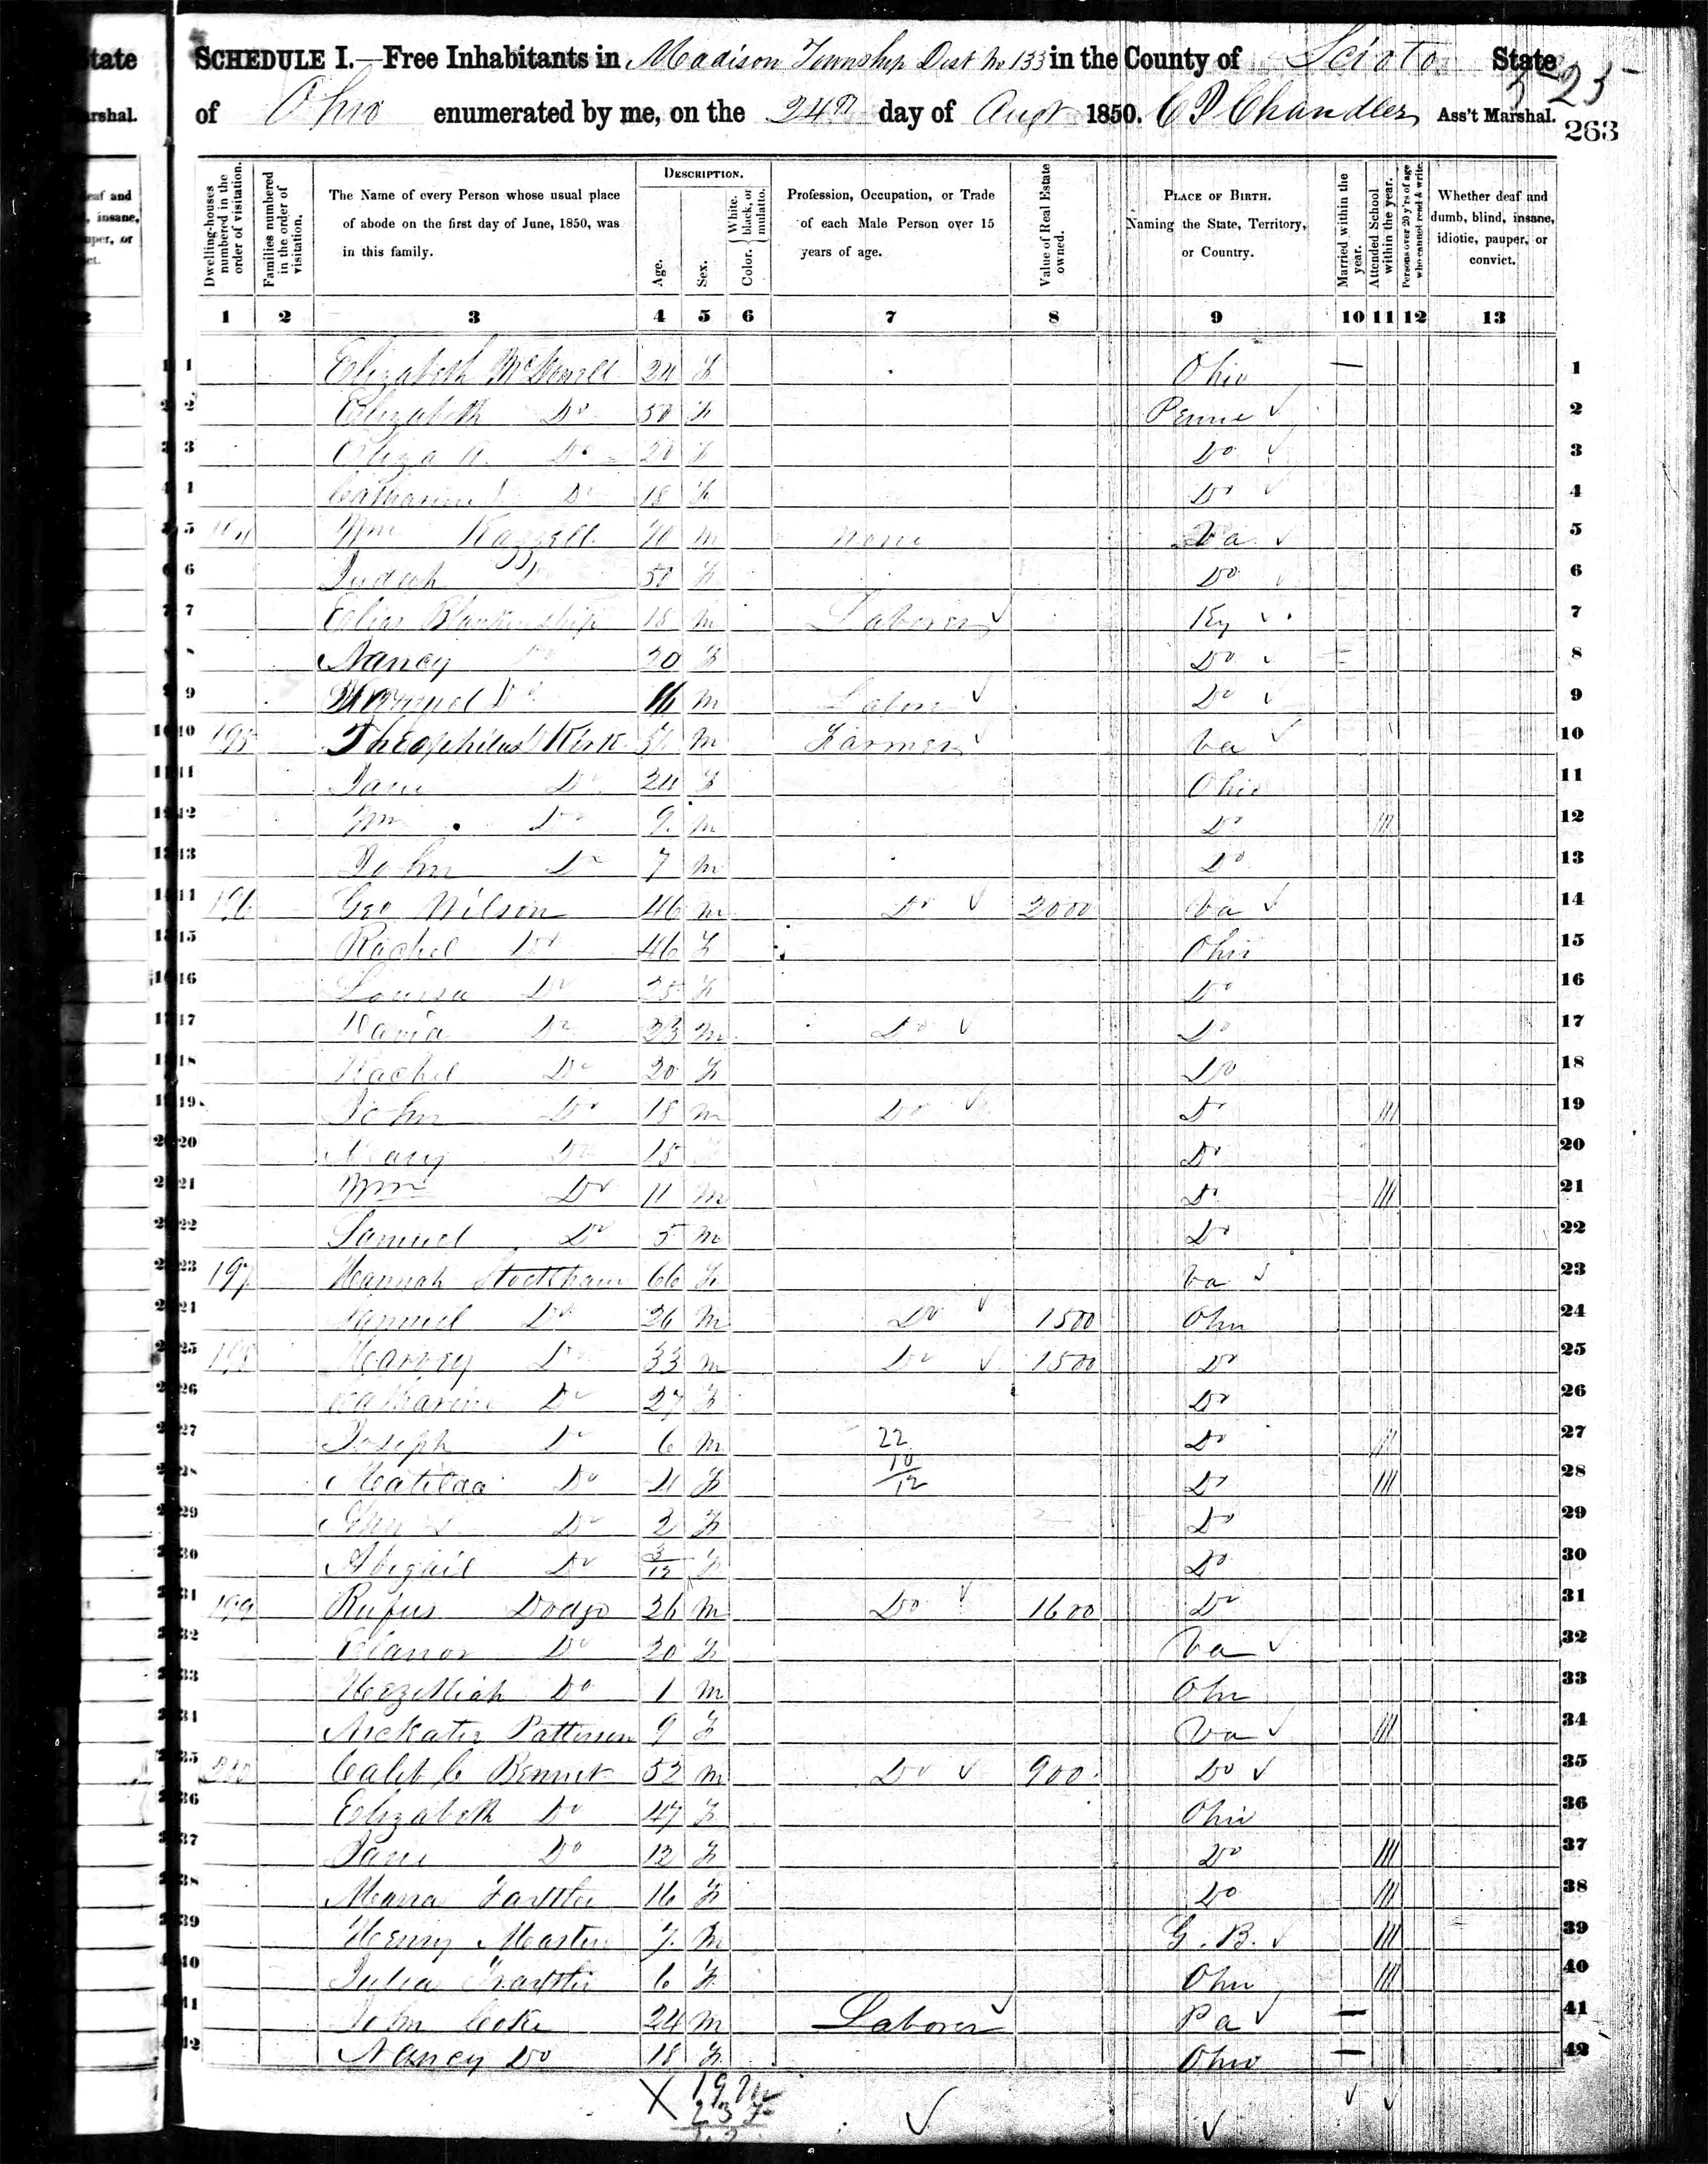 State
SCHEDULE I.—Free Inhabitants in Madison Township Dist No 133 in the County of Scioto State
of Ohio enumerated by me, on the 24th day of Augt 1850. C P Chandler Ass't Marshal.
263
Dwelling-houses numbered in the order of visitation.
Families numbered in the order of visitation.
The Name of every Person whose usual place of abode on the first day of June, 1850, was in this family.
DESCRIPTION.
Age.
Sex.
Color. White, black, or mulatto.
Profession, Occupation, or Trade of each Male Person over 15 years of age.
Value of Real Estate owned.
PLACE OF BIRTH. Naming the State, Territory, or Country.
Married within the year.
Attended School within the year.
Persons over 20 y'rs of age who cannot read & write.
Whether deaf and dumb, blind, insane, idiotic, pauper, or convict.
1 2 3 4 5 6 7 8 9 10 11 12 13
1 Elizabeth 24 F Ohio — 1
2 Elizabeth Do 50 F Penne 2
3 Eliza A. Do 20 F Do 3
4 Catharine Do 18 F Do 4
5 Wm 70 m None Va 5
6 Judah Do 50 F Do 6
7 Elias Blankinship 18 m Laborer Ky 7
8 Nancy Do 20 F Do 8
9 Do 16 m Labor Do 9
10 195 Theophilus Kirk m Farmer Va 10
11 Jane Do 24 F Ohio 11
12 Wm Do 9 m Do /// 12
13 John Do 7 m Do 13
14 196 Geo Wilson 46 m Do 2000 Va 14
15 Rachel Do 46 F Ohio 15
16 Louisa Do 25 F Do 16
17 David Do 23 m Do Do 17
18 Rachel Do 20 F Do 18
19 John Do 18 m Do Do /// 19
20 Mary Do 15 Do 20
21 Wm Do 11 m Do /// 21
22 Samuel Do 5 m Do 22
23 197 Hannah Stockham 66 F Va 23
24 Samuel Do 26 m Do 1500 Ohio 24
25 198 Harvey Do 33 m Do 1500 Do 25
26 Catharine Do 27 F Do 26
27 Joseph Do 6 m 22 Do // 27
28 Matilda Do 4 F 10/12 Do /// 28
29 Do 2 F Do 29
30 Abigail Do 3/12 F Do 30
31 199 Rufus Dodge 26 m Do 1600 Do 31
32 Elanor Do 20 F Va 32
33 Hezekiah Do 1 m Ohio 33
34 Patterson 9 F Va /// 34
35 200 Caleb C Bennet 52 m Do 900 Do 35
36 Elizabeth Do 47 F Ohio 36
37 Jane Do 12 F Do /// 37
38 16 F Do /// 38
39 Henry Martin 7 m G. B. /// 39
40 Julia 6 F Ohio /// 40
41 John Coke 24 m Laborer Pa — 41
42 Nancy Do 18 F Ohio — 42
X 19 m
23 F